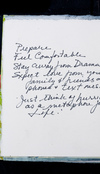 Prepare
Feel Comfortable
Stay away from Drama
Expect love from your
family & friends
(phone & text mess
Just think of
as a metaphor for
Life!